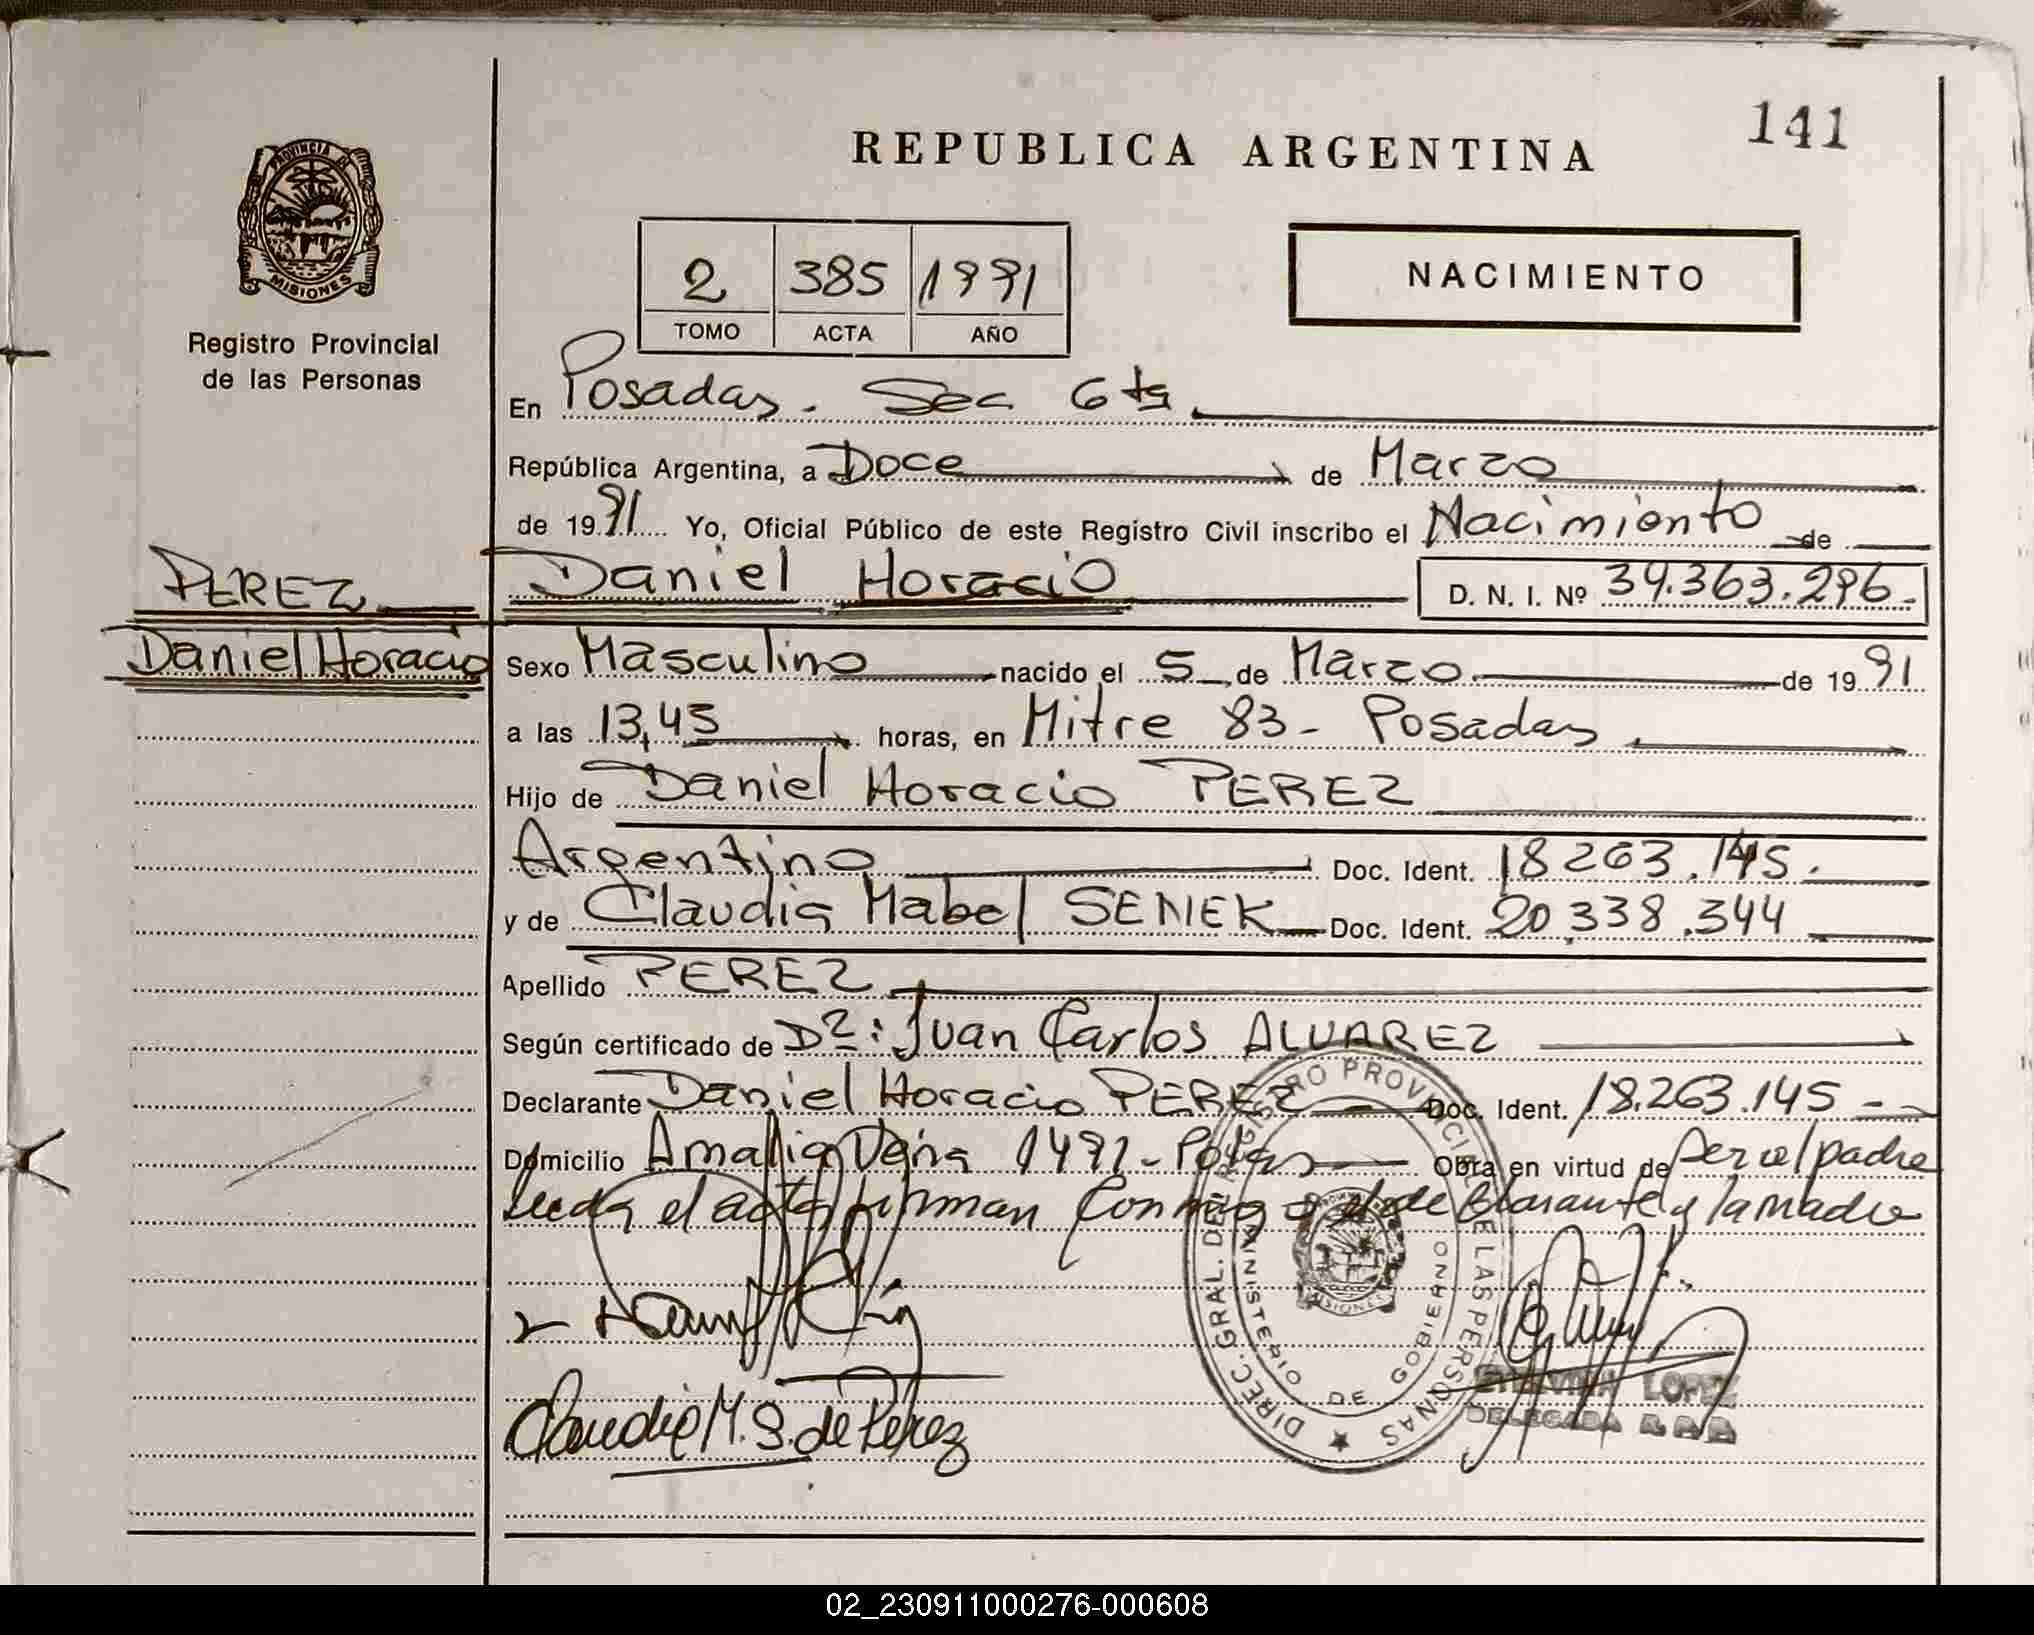 141
REPUBLICA ARGENTINA
PROVINCIA DE
MISIONES
Registro Provincial
de las Personas
2 385 1991
TOMO ACTA AÑO
NACIMIENTO
En Posadas. Sec 6ta
República Argentina, a Doce de Marzo
de 1991 Yo, Oficial Público de este Registro Civil inscribo el Nacimiento de
PEREZ Daniel Horacio D. N. I. Nº 34.363.296.
Daniel Horacio Sexo Masculino nacido el 5 de Marzo de 1991
a las 13,45 horas, en Mitre 83 - Posadas
Hijo de Daniel Horacio PEREZ
Argentino Doc. Ident. 18263.145.
y de Claudia Mabel SENEK Doc. Ident. 20,338.344
Apellido PEREZ
Según certificado de Dº: Juan Carlos ALVAREZ
Declarante Daniel Horacio PEREZ Doc. Ident. 18.263.145
Domicilio Amalia 1491 - Obra en virtud de ser el padre
Leida el acta firman conmigo el declarante y la madre
DIREC. GRAL. DEL REGISTRO PROVINCIAL DE LAS PERSONAS
MINISTERIO DE GOBIERNO
MISIONES
Claudia M. S. de Perez
LOPEZ
DELEGADA
02_230911000276-000608